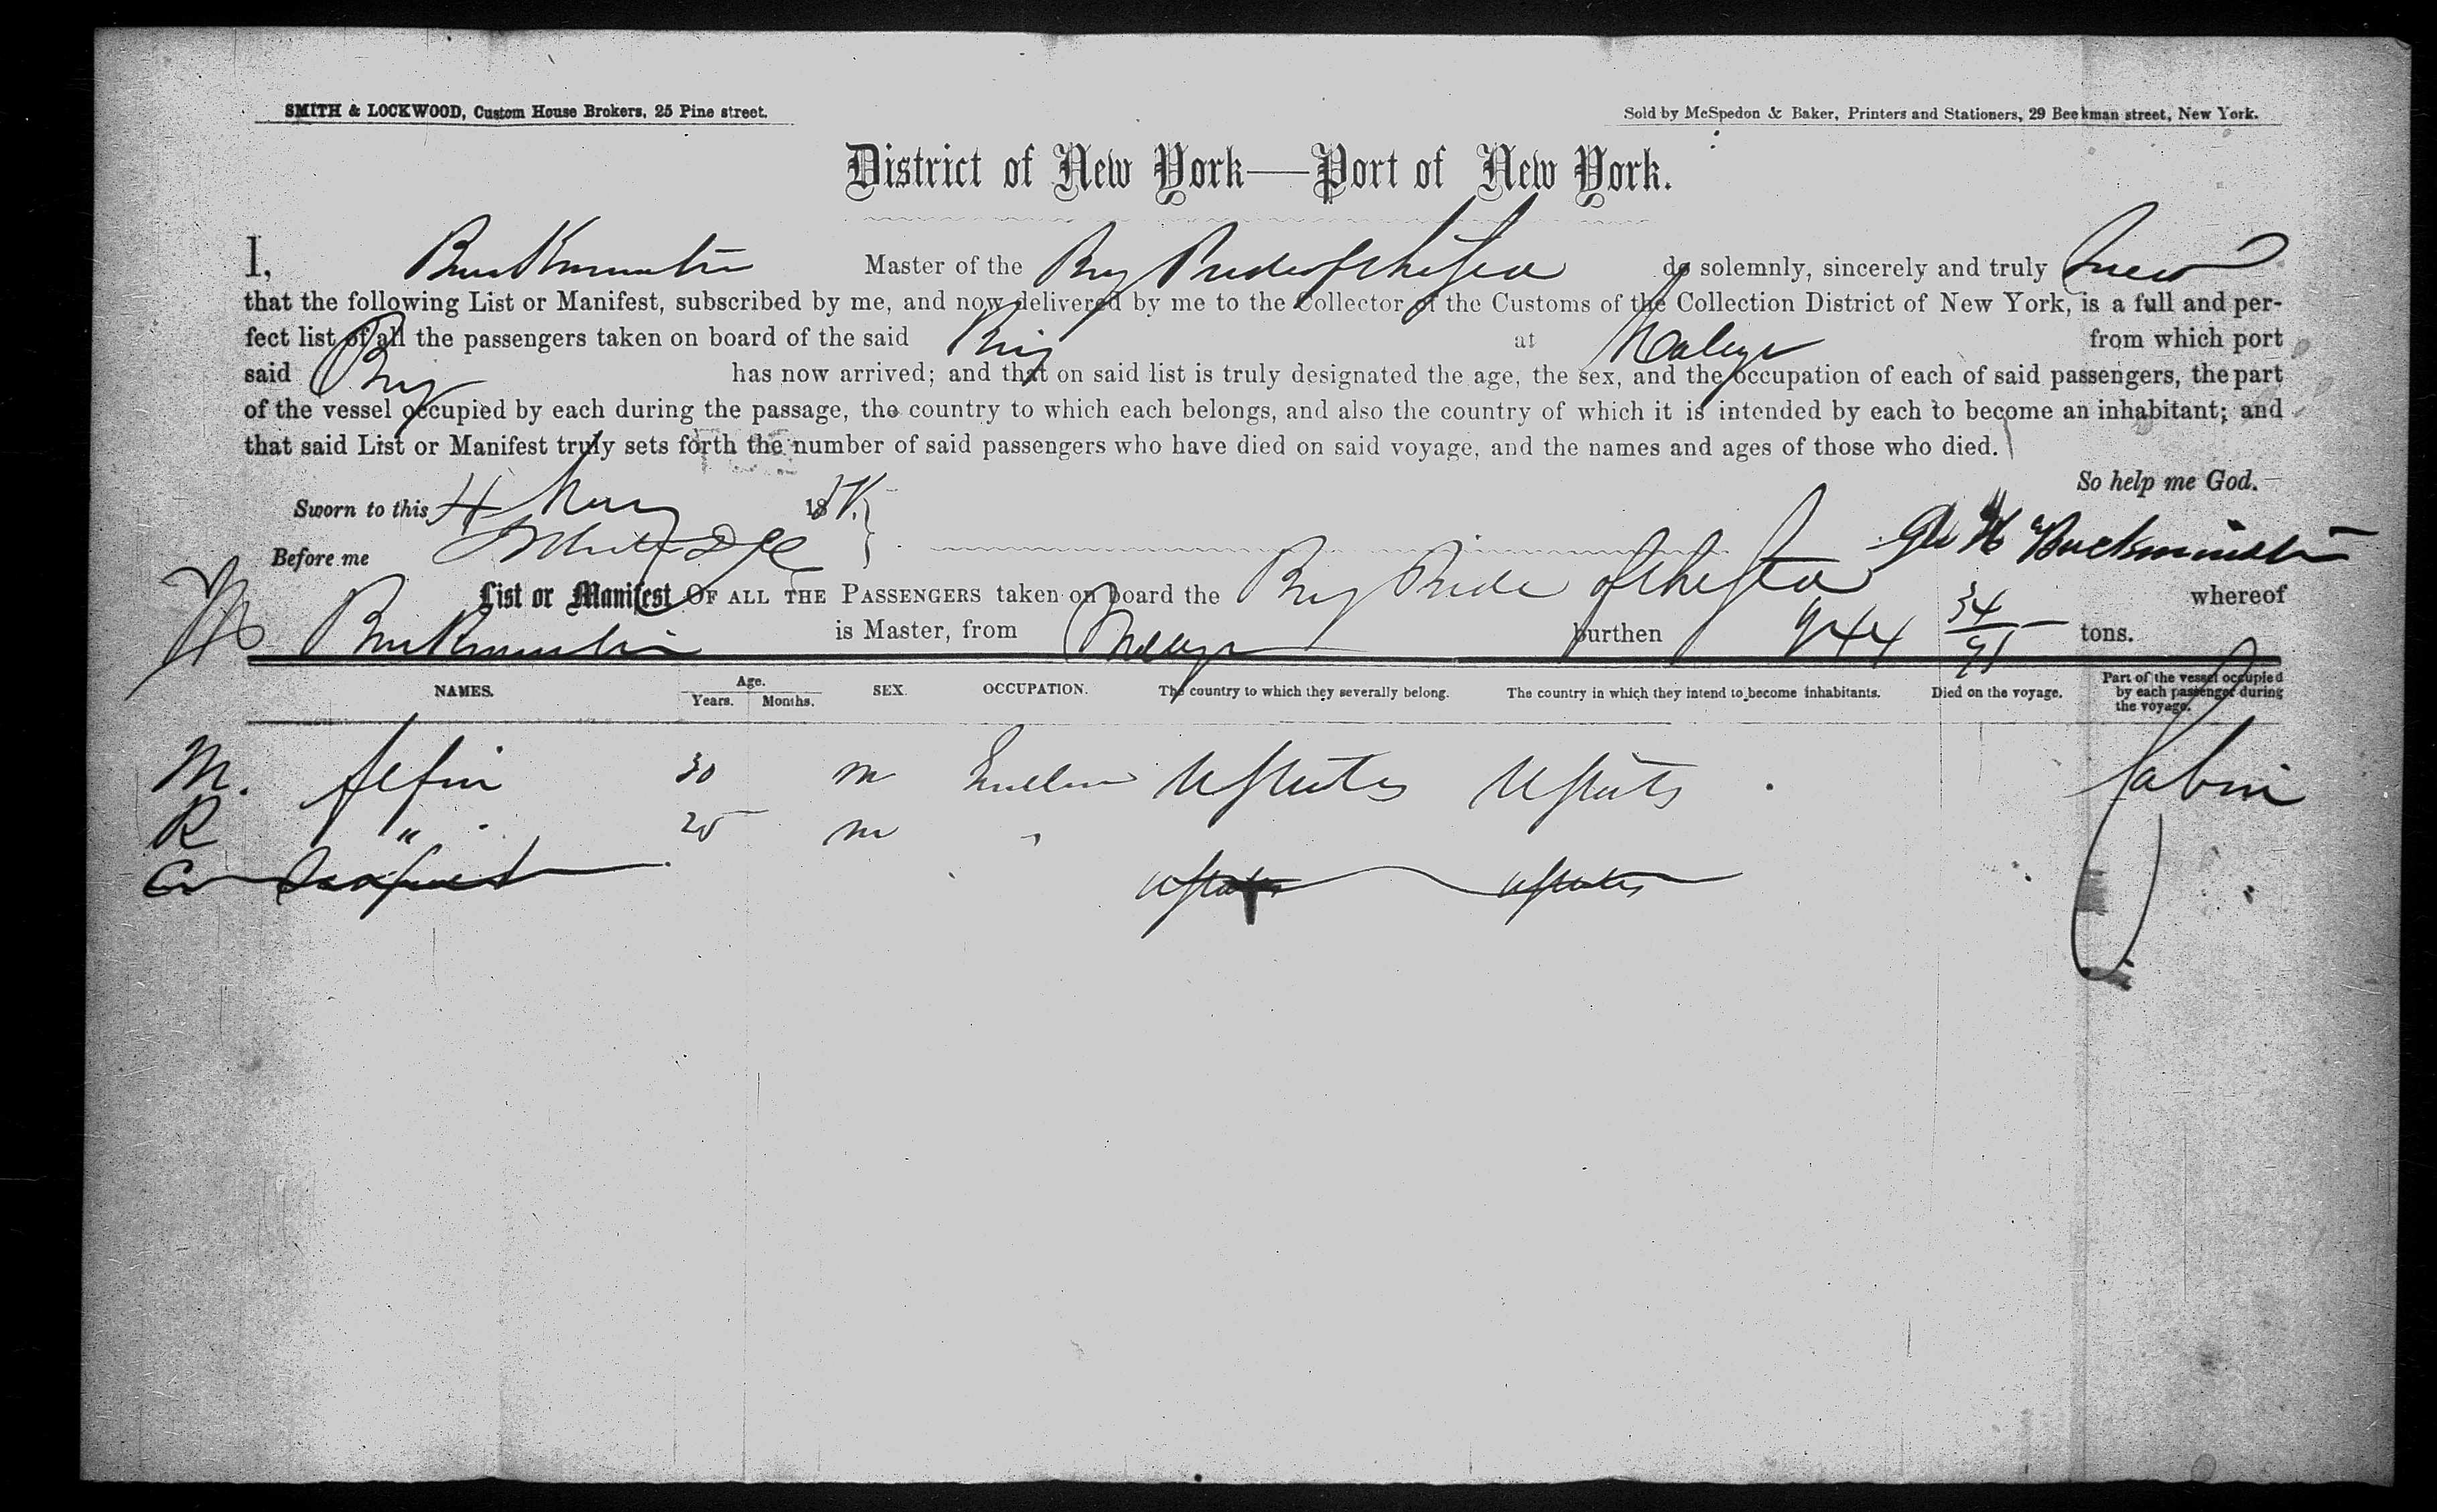 SMITH & LOCKWOOD, Custom House Brokers, 25 Pine street.
Sold by McSpedon & Baker, Printers and Stationers, 29 Beekman street, New York.
District of New York—Port of New York.
I, Buckminster Master of the Brig Pride of the Sea do solemnly, sincerely and truly swear
that the following List or Manifest, subscribed by me, and now delivered by me to the Collector of the Customs of the Collection District of New York, is a full and per-
fect list of all the passengers taken on board of the said Brig at Malaga from which port
said Brig has now arrived; and that on said list is truly designated the age, the sex, and the occupation of each of said passengers, the part
of the vessel occupied by each during the passage, the country to which each belongs, and also the country of which it is intended by each to become an inhabitant; and
that said List or Manifest truly sets forth the number of said passengers who have died on said voyage, and the names and ages of those who died.
So help me God.
Sworn to this 4 18
Before me
H Buckminster
List or Manifest OF ALL THE PASSENGERS taken on board the Brig Pride of the Sea whereof
Buckminster is Master, from Malaga burthen 244 34/95 tons.
NAMES. Age. Years. Months. SEX. OCCUPATION. The country to which they severally belong. The country in which they intend to become inhabitants. Died on the voyage. Part of the vessel occupied by each passenger during the voyage.
M. 30 m U States U States Cabin
R " 25 m "
U States U States